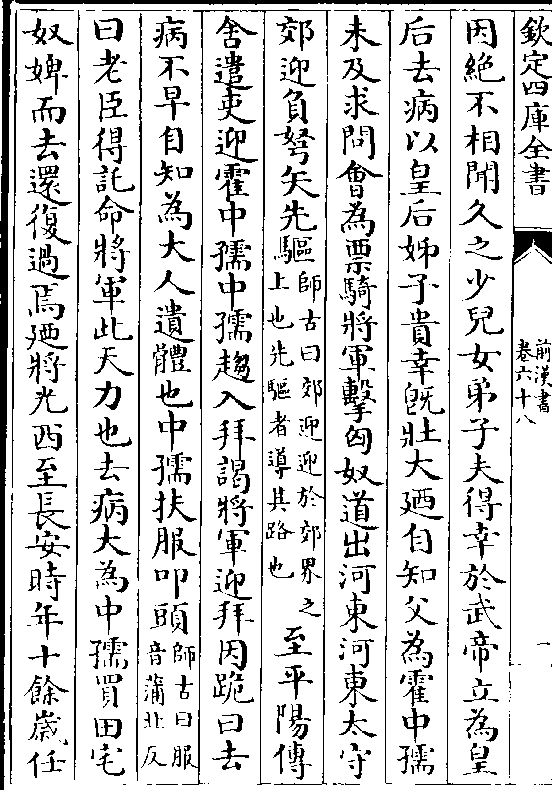 欽定四庫全書
前漢書
卷六十八
一
因絶不相聞久之少兒女弟子夫得幸於武帝立為皇
后去病以皇后姊子貴幸既壯大廼自知父為霍中孺
未及求問㑹為票騎將軍擊匈奴道出河東河東太守
郊迎負弩矢先驅師古曰郊迎迎於郊界之上也先驅者導其路也至平陽傳
舍遣吏迎霍中孺中孺趨入拜謁將軍迎拜因跪曰去
病不早自知為大人遺體也中孺扶服叩頭師古曰服音蒲北反
曰老臣得託命將軍此天力也去病大為中孺買田宅
奴婢而去還復過焉廼將光西至長安時年十餘歳任